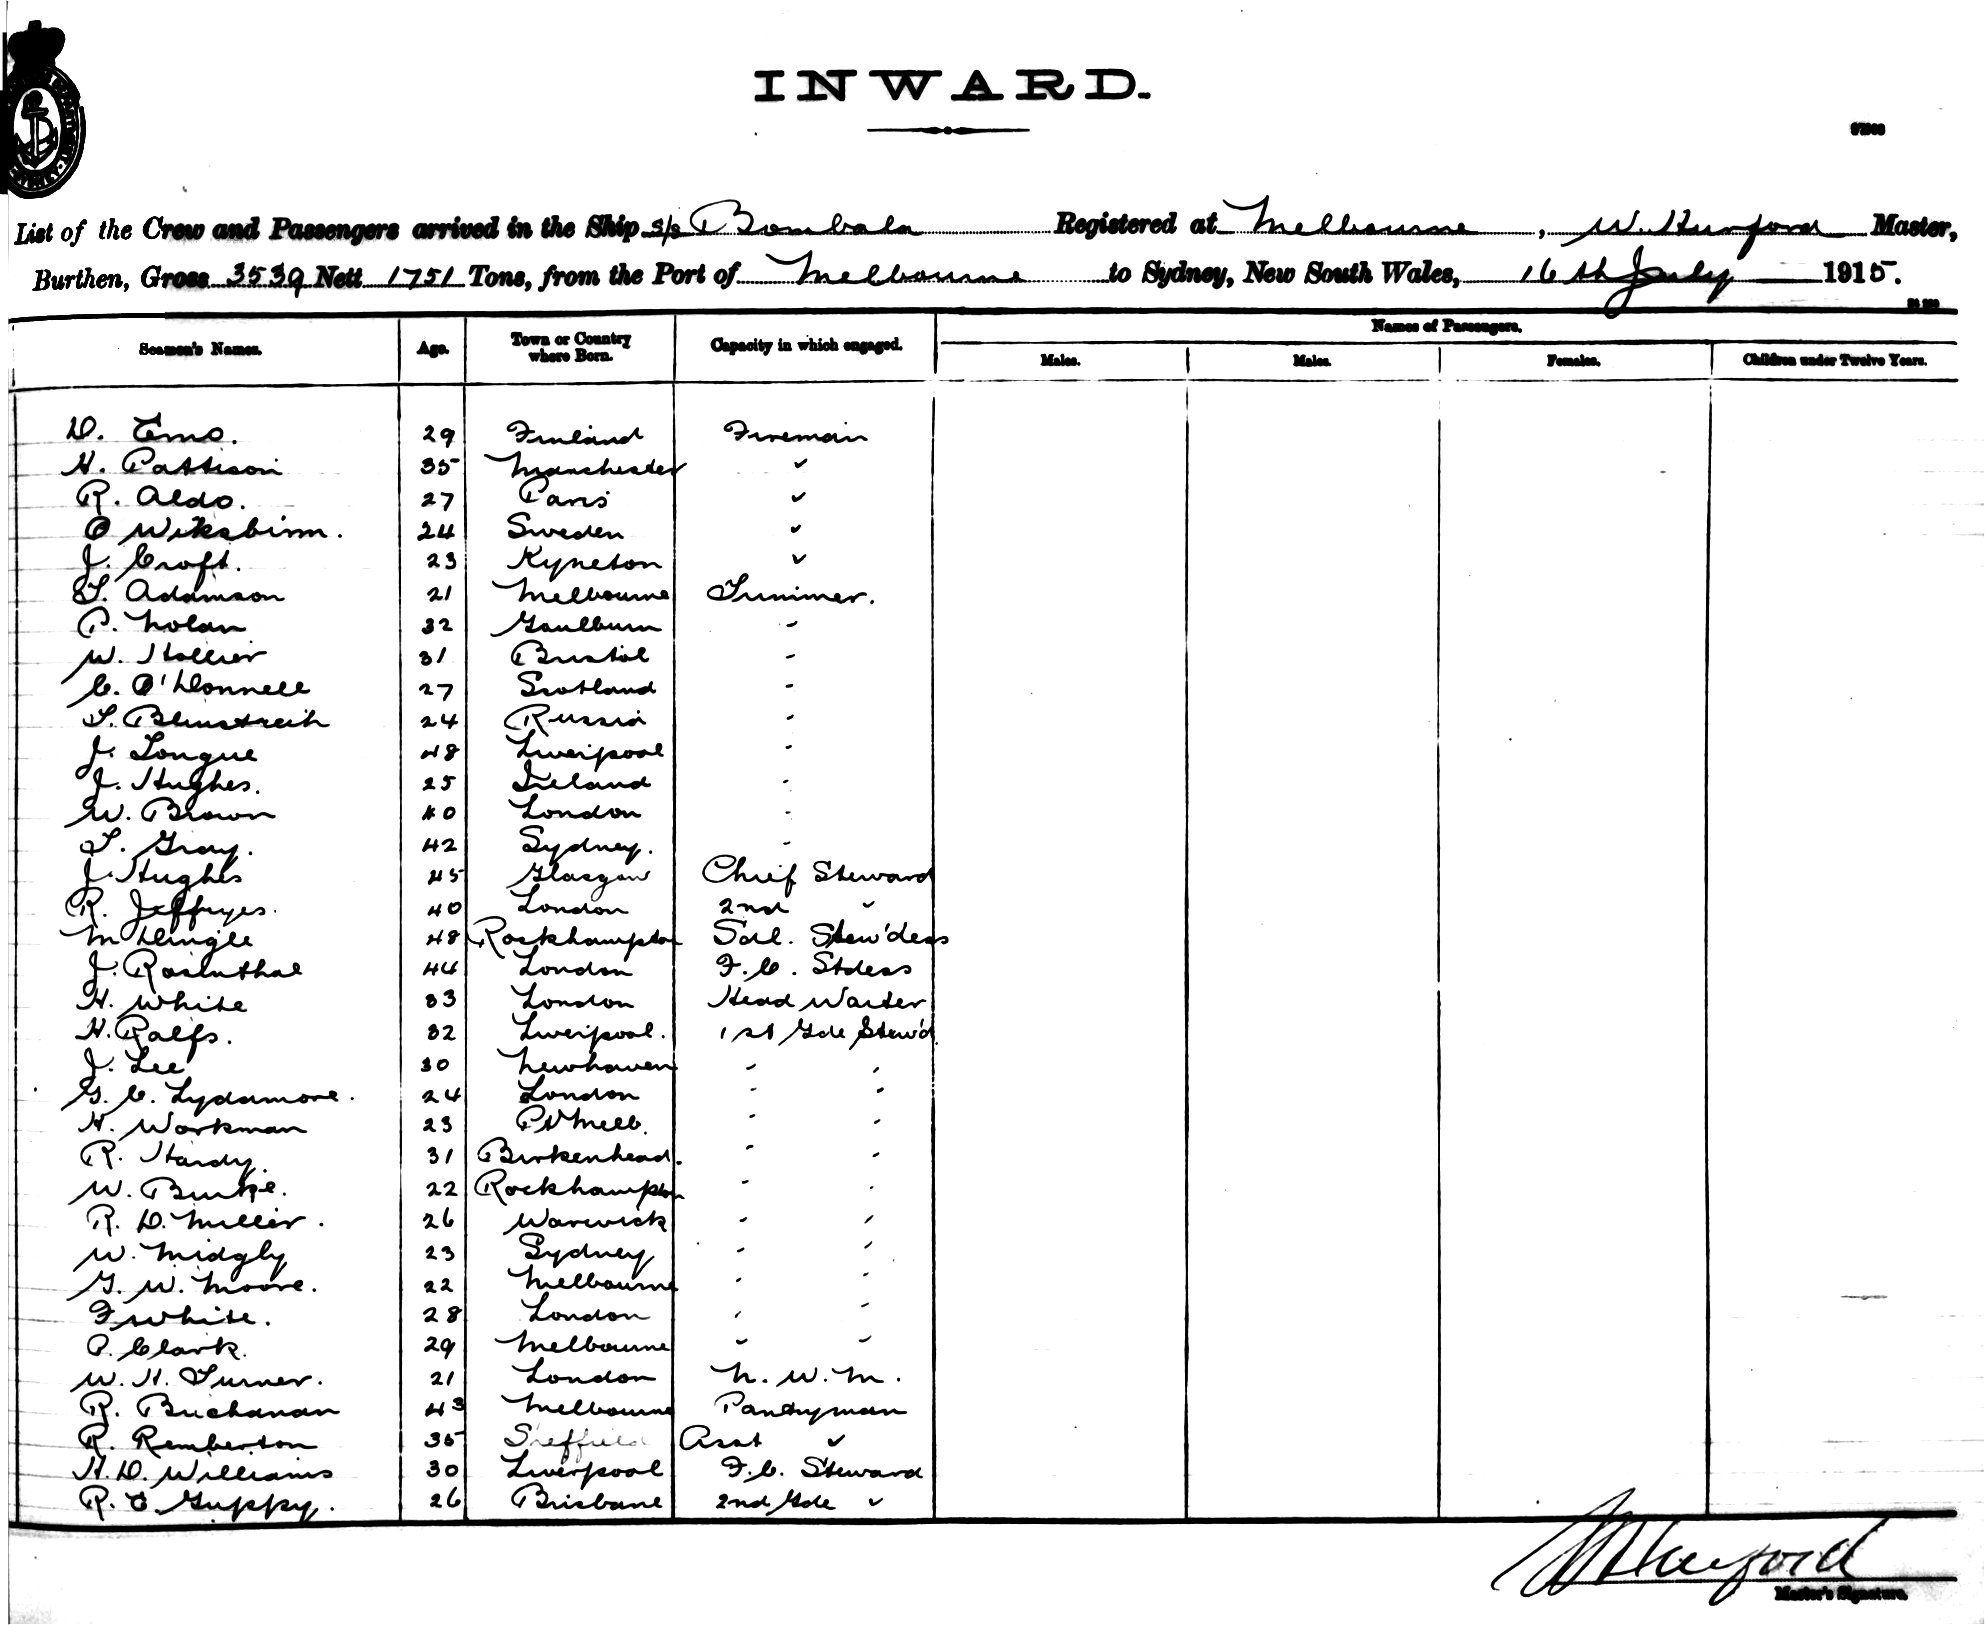 INWARD.
List of the Crew and Passengers arrived in the Ship s/s Bombala Registered at Melbourne, W. Hurford Master,
Burthen, Gross 3539 Nett 1751 Tons, from the Port of Melbourne to Sydney, New South Wales, 16th July 1915.
Names of Passengers.
Seamen's Names. Age. Town or Country where Born. Capacity in which engaged. Males. Males. Females. Children under Twelve Years.
D. Emo. 29 Finland Fireman
H. Pattison 35 Manchester "
R. Aldo. 27 Paris "
O Wiksbinn. 24 Sweden "
J. Croft. 23 Kyneton "
S. Adamson 21 Melbourne Trimmer.
P. Nolan 32 Goulburn "
W. Hollier 31 Bristol "
C. O'Donnell 27 Scotland "
24 Russia "
J. Longue 48 Liverpool "
J. Hughes. 25 Ireland "
W. Brown 40 London "
T. Gray. 42 Sydney. "
J. Hughes 45 Glasgow Chief Steward
R. Jeffryes. 40 London 2nd "
M Dingle 48 Rockhampton Sal. Stew'dess
J. Rosinthal 44 London F.C. Stdess
H. White 33 London Head Waiter
H. Ralfs. 32 Liverpool. 1st Gde Stew'd
J. Lee 30 Newhaven " "
G. C. Lydamore. 24 London " "
H. Workman 23 Pt Melb. " "
R. Hardy. 31 Birkenhead. " "
W. Burke. 22 Rockhampton " "
R. D. Miller. 26 Warwick " "
W. Midgly 23 Sydney " "
G. W. Moore. 22 Melbourne " "
F White. 28 London " "
P. Clark. 29 Melbourne " "
W. H. Turner. 21 London N. W. M.
R. Buchanan 43 Melbourne Pantryman
R. Remberton 35 Sheffield Asst "
H. D. Williams 30 Liverpool F.C. Steward
R. C Guppy. 26 Brisbane 2nd Gde "
W Hurford
Master's Signature.